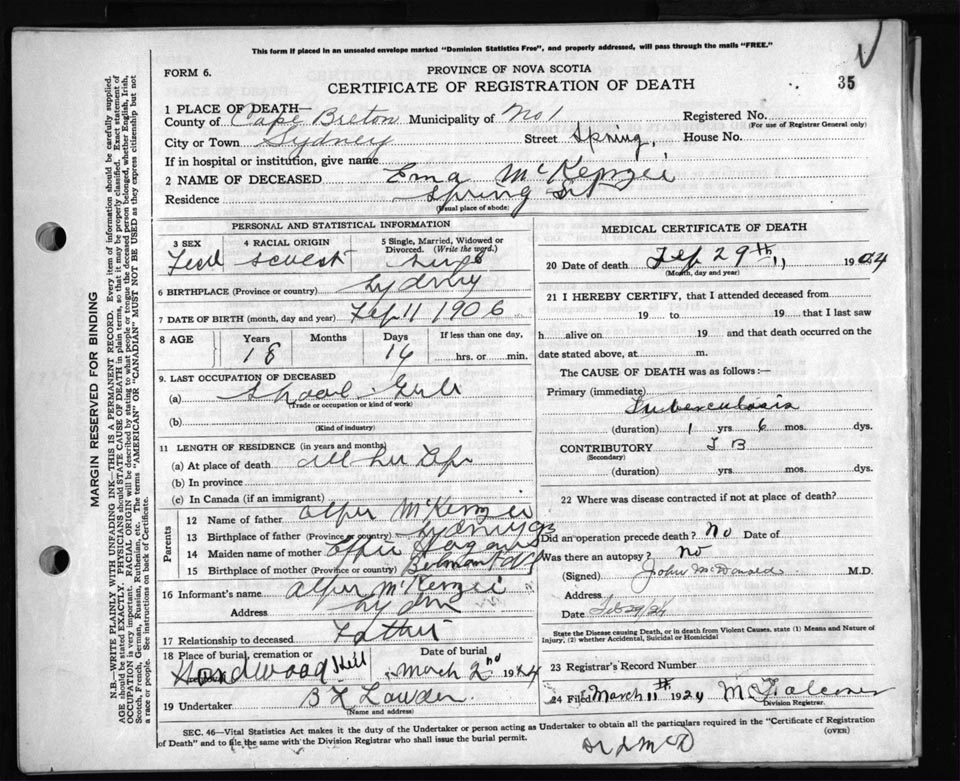 This form if placed in an unsealed envelope marked "Dominion Statistics Free", and properly addressed, will pass through the mails "FREE."
FORM 6.
PROVINCE OF NOVA SCOTIA
CERTIFICATE OF REGISTRATION OF DEATH
35
1 PLACE OF DEATH—
County of Cape Breton Municipality of No 1 Registered No.
(For use of Registrar General only)
City or Town Sydney Street Spring, House No.
If in hospital or institution, give name
2 NAME OF DECEASED Ema McKenzei
Residence Spring St
(Usual place of abode)
MARGIN RESERVED FOR BINDING
N.B.—WRITE PLAINLY WITH UNFADING INK—THIS IS A PERMANENT RECORD. Every item of information should be carefully supplied.
AGE should be stated EXACTLY. PHYSICIANS should STATE CAUSE OF DEATH in plain terms, so that it may be properly classified. Exact statement of
OCCUPATION is very important. RACIAL ORIGIN will be described by stating to what people or tongue the deceased person belonged, whether English, Irish,
Scotch, French, German, Russian, Ruthenian, etc. The terms "AMERICAN" or "CANADIAN" MUST NOT BE USED as they express citizenship but not
a race or people. See instructions on back of Certificate.
PERSONAL AND STATISTICAL INFORMATION
3 SEX 4 RACIAL ORIGIN 5 Single, Married, Widowed or
Divorced. (Write the word.)
6 BIRTHPLACE (Province or country) Sydney
7 DATE OF BIRTH (month, day and year) Feb 11 1906
8 AGE Years Months Days If less than one day,
18 14 hrs. or min.
9. LAST OCCUPATION OF DECEASED
(a) Shool Gerl
(Trade or occupation or kind of work)
(b)
(Kind of industry)
11 LENGTH OF RESIDENCE (in years and months)
(a) At place of death all her
(b) In province
(c) In Canada (if an immigrant)
Parents
12 Name of father McKenzei
13 Birthplace of father (Province or country)
14 Maiden name of mother
15 Birthplace of mother (Province or country)
16 Informant's name McKenzei
Address
17 Relationship to deceased Father
18 Place of burial, cremation or Date of burial
Hardwood Hill March 2nd 1924
19 Undertaker
(Name and address)
MEDICAL CERTIFICATE OF DEATH
20 Date of death Feb 29th 1924
(Month, day and year)
21 I HEREBY CERTIFY, that I attended deceased from
19 to 19 that I last saw
h alive on 19 and that death occurred on the
date stated above, at m.
The CAUSE OF DEATH was as follows:—
Primary (immediate)
Tuberculosis
(duration) 1 yrs 6 mos. dys.
CONTRIBUTORY T B
(Secondary)
(duration) yrs. mos. dys.
22 Where was disease contracted if not at place of death?
Did an operation precede death? No Date of
Was there an autopsy? No
(Signed) John McDonald M.D.
Address
Date Feb 29/24
State the Disease causing Death, or in death from Violent Causes, state (1) Means and Nature of
Injury, (2) whether Accidental, Suicidal or Homicidal
23 Registrar's Record Number
24 Filed March 11th 1924
Division Registrar.
SEC. 46—Vital Statistics Act makes it the duty of the Undertaker or person acting as Undertaker to obtain all the particulars required in the "Certificate of Registration
of Death" and to file the same with the Division Registrar who shall issue the burial permit.
(OVER)